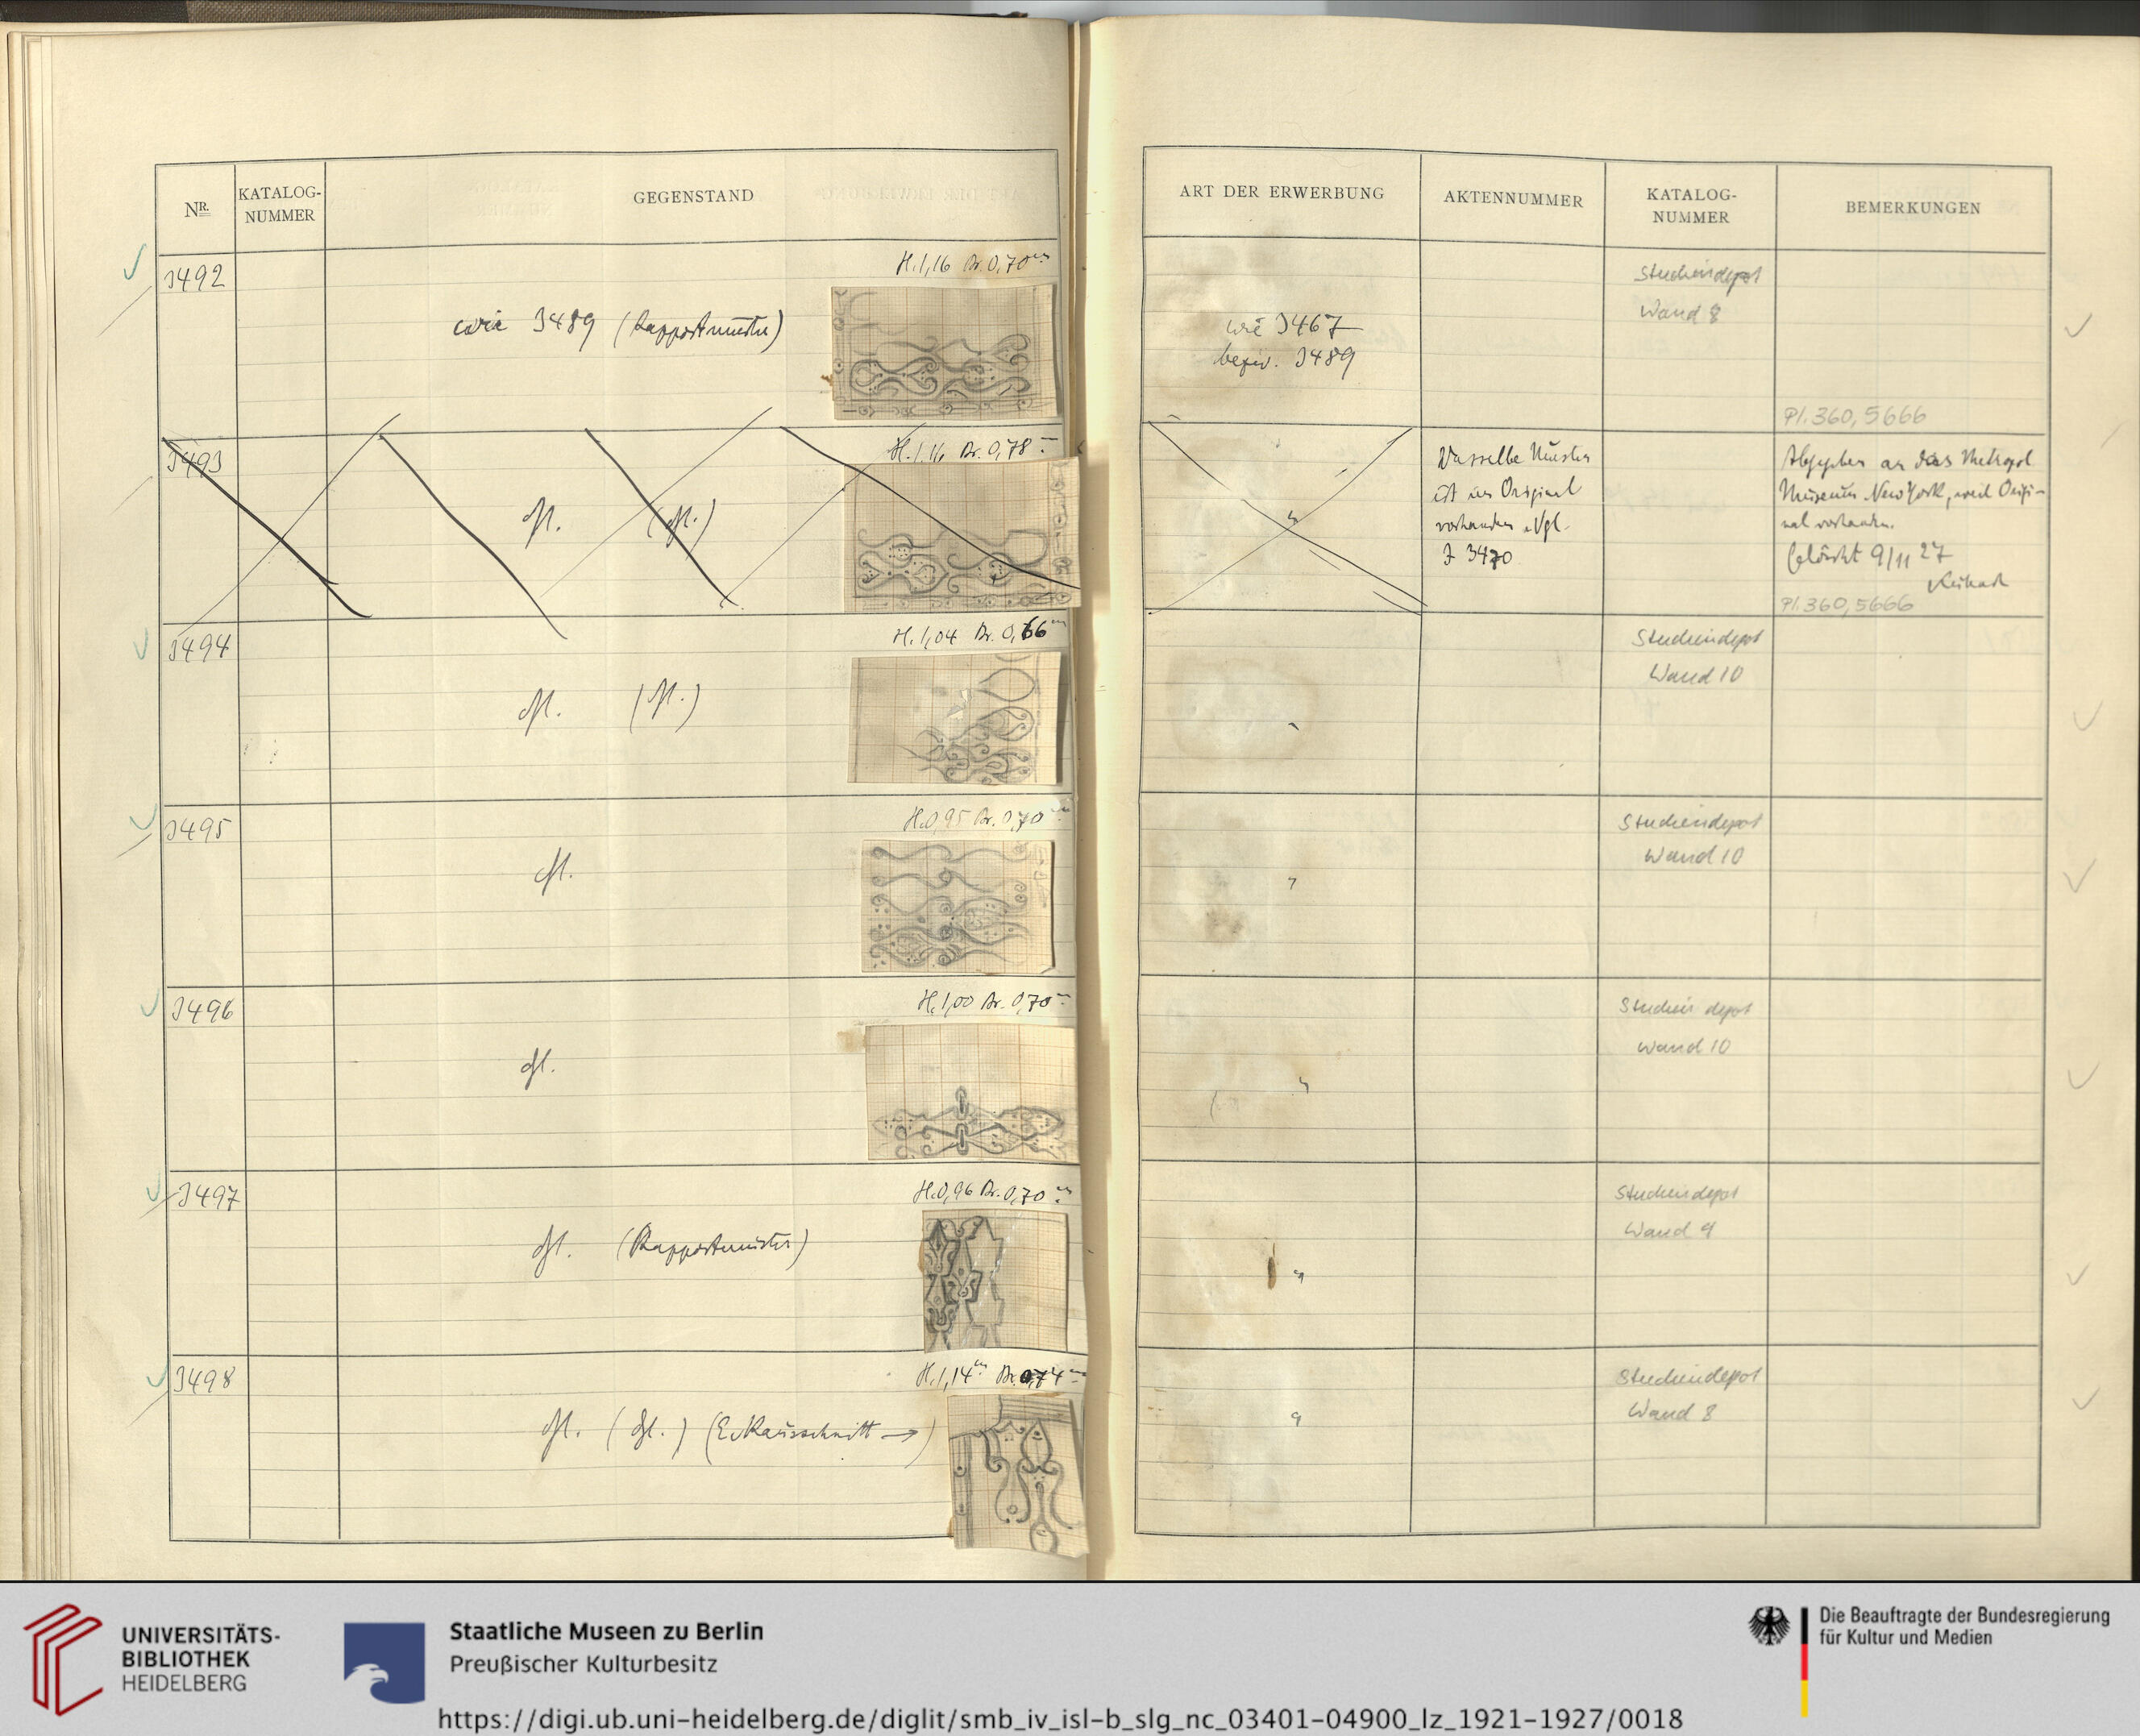 NR.
KATALOG-
NUMMER
GEGENSTAND
ART DER ERWERBUNG
AKTENNUMMER
KATALOG-
NUMMER
BEMERKUNGEN
J492
H. 1,16 Br. 0,70 m
wie J489 (Rapportmuster)
wie J467
bezw. J489
Studiendepot
Wand 8
Pl. 360, 5666
J493
H. 1,16 Br. 0,78 m
dgl. (dgl.)
"
Dasselbe Muster
ist im Original
vorhanden. Vgl.
J 3470
Abgegeben an das Metropol.
Museum New York, weil Origi-
nal vorhanden.
Gelöscht 9/11 27
Pl. 360, 5666
J494
H. 1,04 Br. 0,66 m
dgl. (dgl.)
"
Studiendepot
Wand 10
J495
H. 0,95 Br. 0,70 m
dgl.
"
Studiendepot
Wand 10
J496
H. 1,00 Br. 0,70 m
dgl.
"
Studiendepot
Wand 10
J497
H. 0,96 Br. 0,70 m
dgl. (Rapportmuster)
"
Studiendepot
Wand 9
J498
H. 1,14 m Br. 0,74 m
dgl. (dgl.) (Eckausschnitt →)
"
Studiendepot
Wand 8
UNIVERSITÄTS-
BIBLIOTHEK
HEIDELBERG
Staatliche Museen zu Berlin
Preußischer Kulturbesitz
Die Beauftragte der Bundesregierung
für Kultur und Medien
https://digi.ub.uni-heidelberg.de/diglit/smb_iv_isl-b_slg_nc_03401-04900_lz_1921-1927/0018